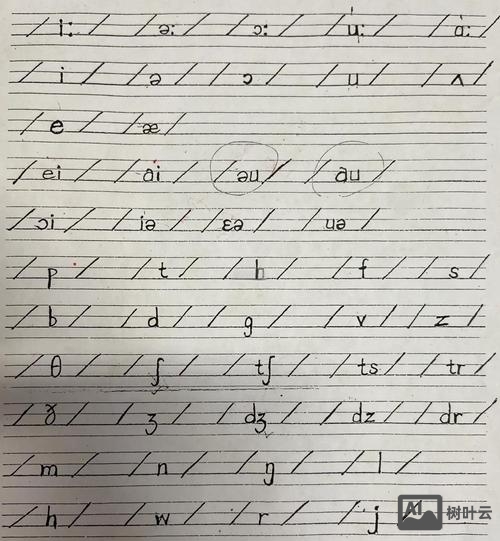 /i:/ /ə:/ /ɔ:/ /u:/ /ɑ:/
/i/ /ə/ /ɔ/ /u/ /ʌ/
/e/ /æ/
/ei/ /ai/ /əu/ /au/
/ɔi/ /iə/ /ɛə/ /uə/
/p/ /t/ /h/ /f/ /s/
/b/ /d/ /g/ /v/ /z/
/θ/ /ʃ/ /tʃ/ /ts/ /tr/
/ɣ/ /ʒ/ /dʒ/ /dz/ /dr/
/m/ /n/ /ŋ/ /l/
/h/ /w/ /r/ /j/
树叶云